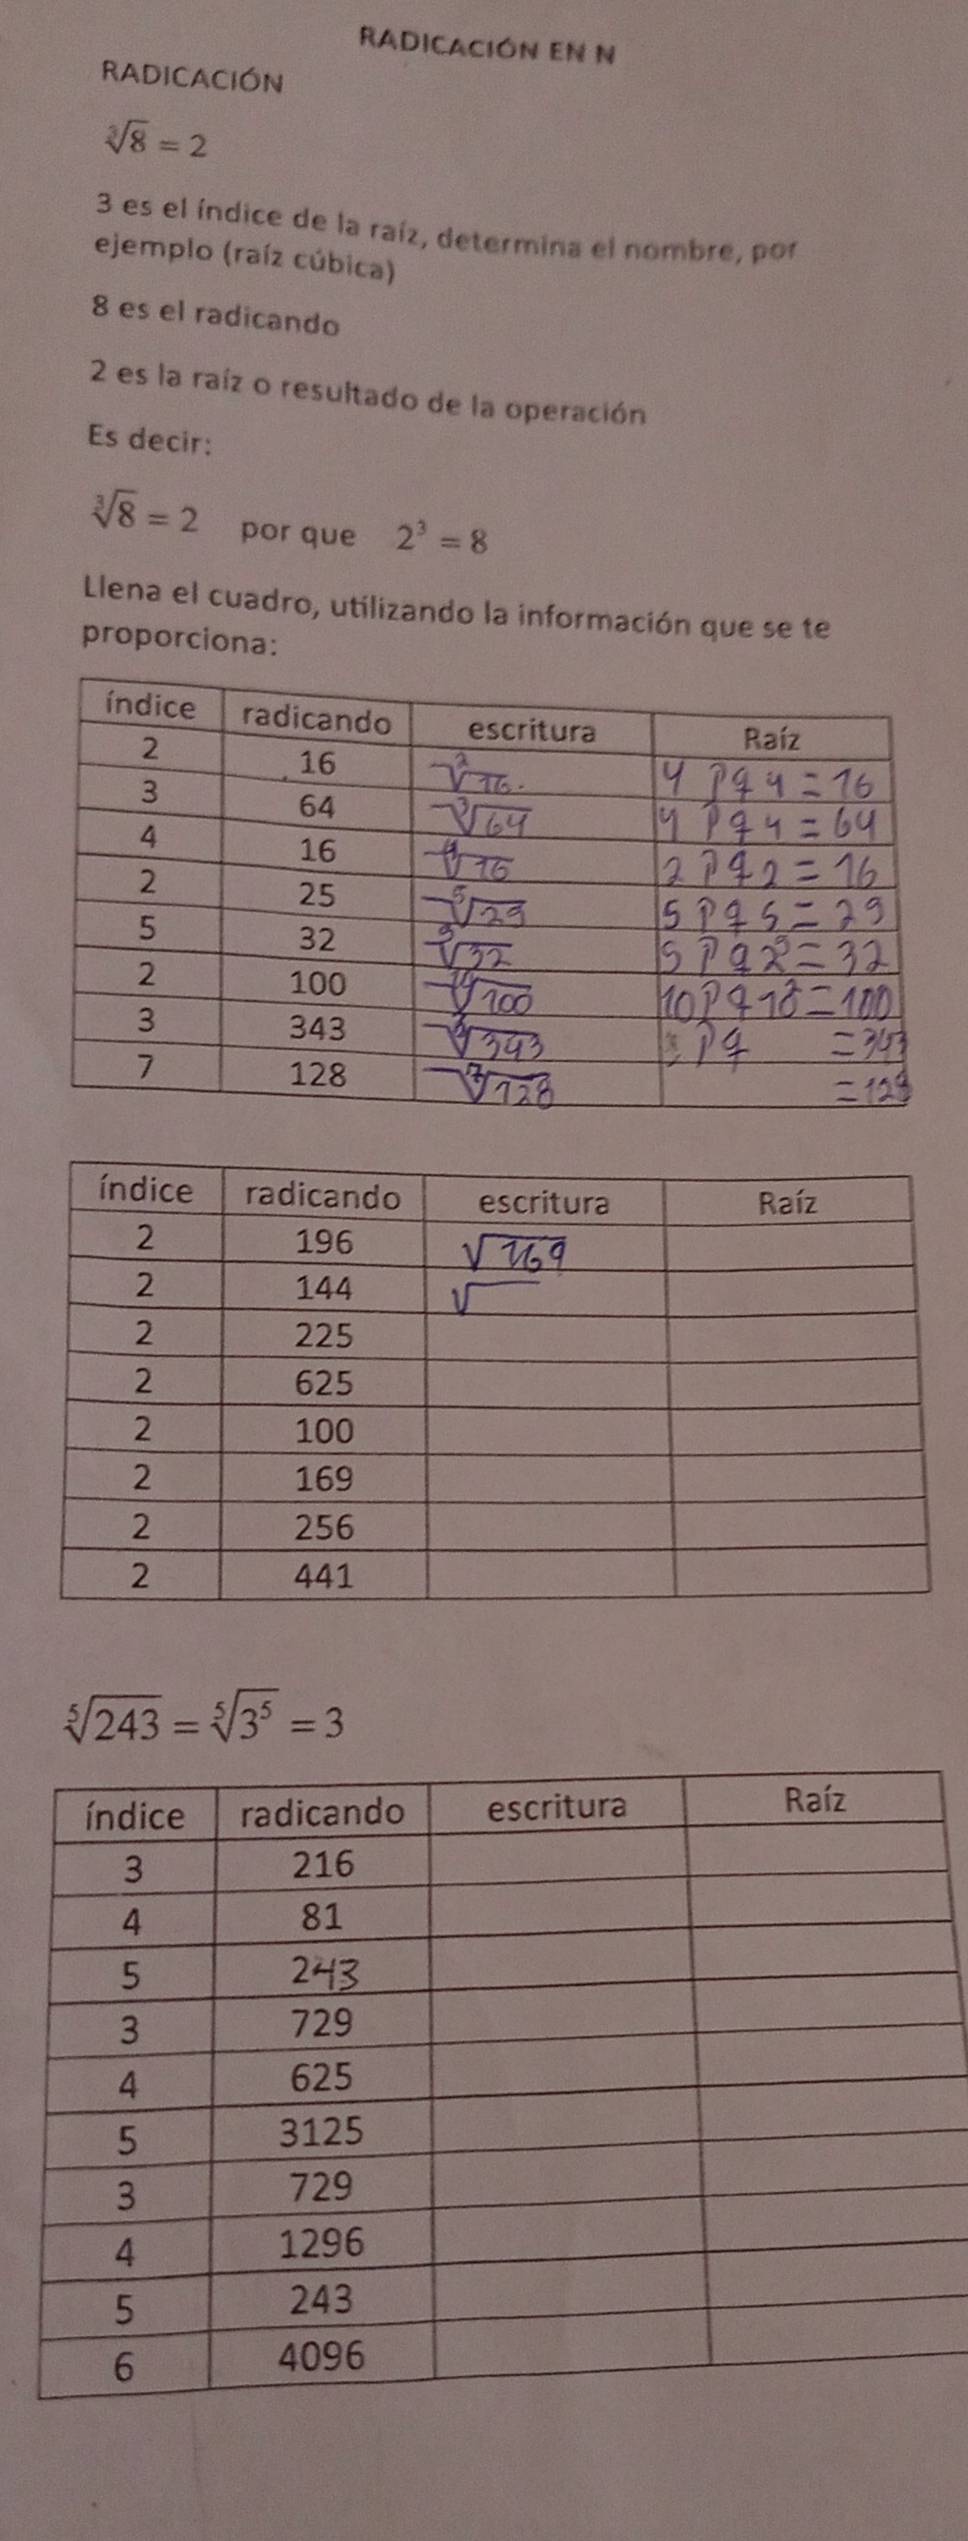 RADICACIÓN EN N
RADICACIÓN
∛8 = 2
3 es el índice de la raíz, determina el nombre, por
ejemplo (raíz cúbica)
8 es el radicando
2 es la raíz o resultado de la operación
Es decir:
∛8 = 2 por que 2³ = 8
Llena el cuadro, utilizando la información que se te
proporciona:
índice radicando escritura Raíz
2 16 ²√16. 4 pq 4 = 16
3 64 ³√64 4 pq 4 = 64
4 16 ⁴√16 2 pq 2 = 16
2 25 ⁵√29 5 pq 5 = 29
5 32 √32 5 pq 2⁵ = 32
2 100 √100 10 pq 10² = 100
3 343 ³√343 pq = 343
7 128 ⁷√128 = 128
índice radicando escritura Raíz
2 196 √169
2 144 √
2 225
2 625
2 100
2 169
2 256
2 441
⁵√243 = ⁵√3⁵ = 3
índice radicando escritura Raíz
3 216
4 81
5 243
3 729
4 625
5 3125
3 729
4 1296
5 243
6 4096